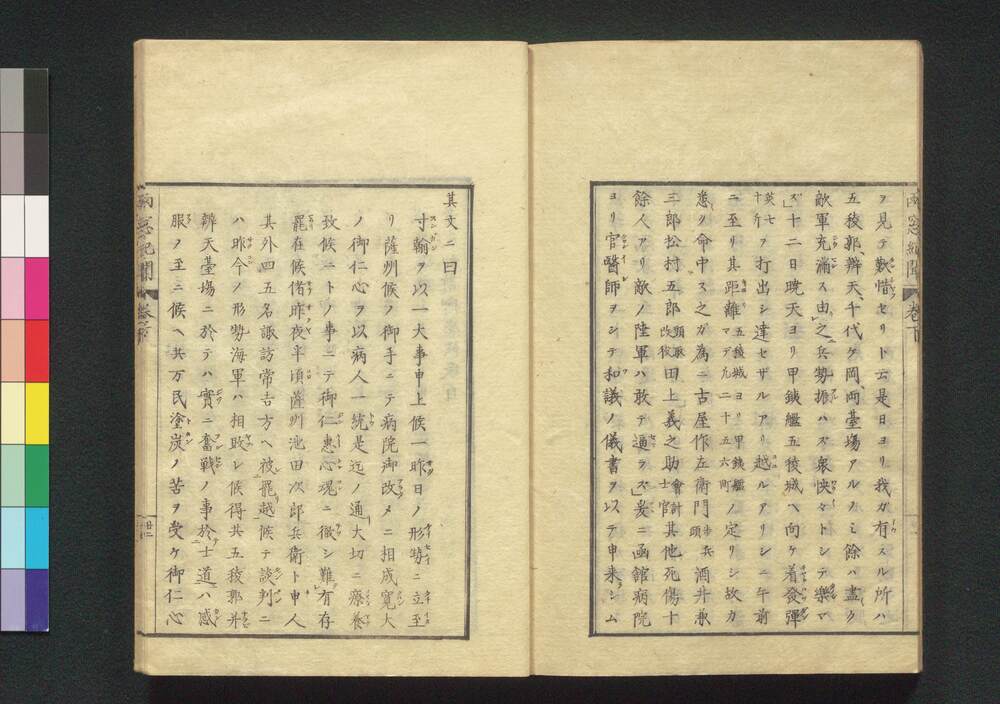 雨窓紀聞 卷下
ヲ見テ歎惜セリト云是日ヨリ我ガ有スル所ハ
五稜郭、辨天、千代ケ岡、両臺場アルノミ餘ハ盡ク
敵軍充滿ス由之兵勢振ハズ衆怏々トシテ樂マ
ズ」十二日曉天ヨリ甲鐵艦五稜城ヘ向ケ着發彈
英七十斤ヲ打出シ達セザルアリ越ルアリシニ午前
ニ至リ其距離五稜城ヨリ甲鐵艦マデ凡二十五六町ノ定リシ故カ
悉ク命中ス之ガ為ニ古屋作左衛門歩兵頭酒井兼
三郎松村五郎頭取改役田上義之助會計士官其他死傷十
餘人アリ敵ノ陸軍ハ敢テ逼ラズ」爰ニ函館病院
ヨリ官醫師ヲシテ和議ノ儀書ヲ以テ申来シム
其文ニ曰
寸翰ヲ以一大事申上候一昨日ノ形勢ニ立至
リ薩州候ノ御手ニテ病院御改メニ相成寛大
ノ御仁心ヲ以病人一統是迄ノ通大切ニ療養
致候ニトノ事ニテ御仁惠心魂ニ徹シ難有存
罷在候偖昨夜半頃薩州池田次郎兵衛ト申人
其外四五名諏訪常吉方ヘ被罷越候テ談判ニ
ハ昨今ノ形勢海軍ハ相敗レ候得共五稜郭并
辨天臺場ニ於テハ實ニ奮戰ノ事於士道ハ感
服ノ至ニ候ヘ共万民塗炭ノ苦ヲ受ケ御仁心
雨窓紀聞 卷下
廿二